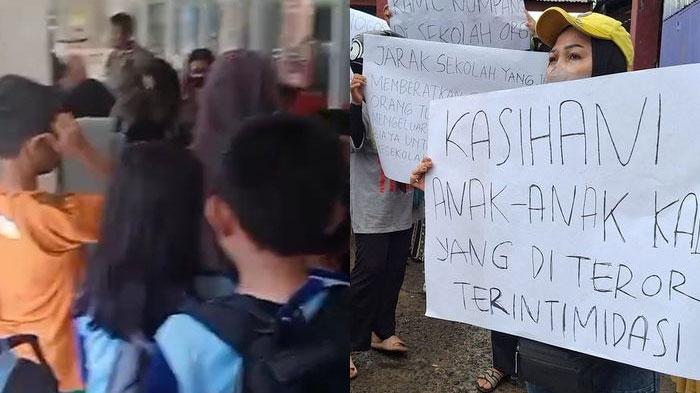 KAMI NUMPANG
DI SEKOLAH
JARAK SEKOLAH YANG
MEMBERATKAN
ORANG
UNTUK
KASIHANI
ANAK-ANAK KA
YANG DI TEROR
TERINTIMIDASI